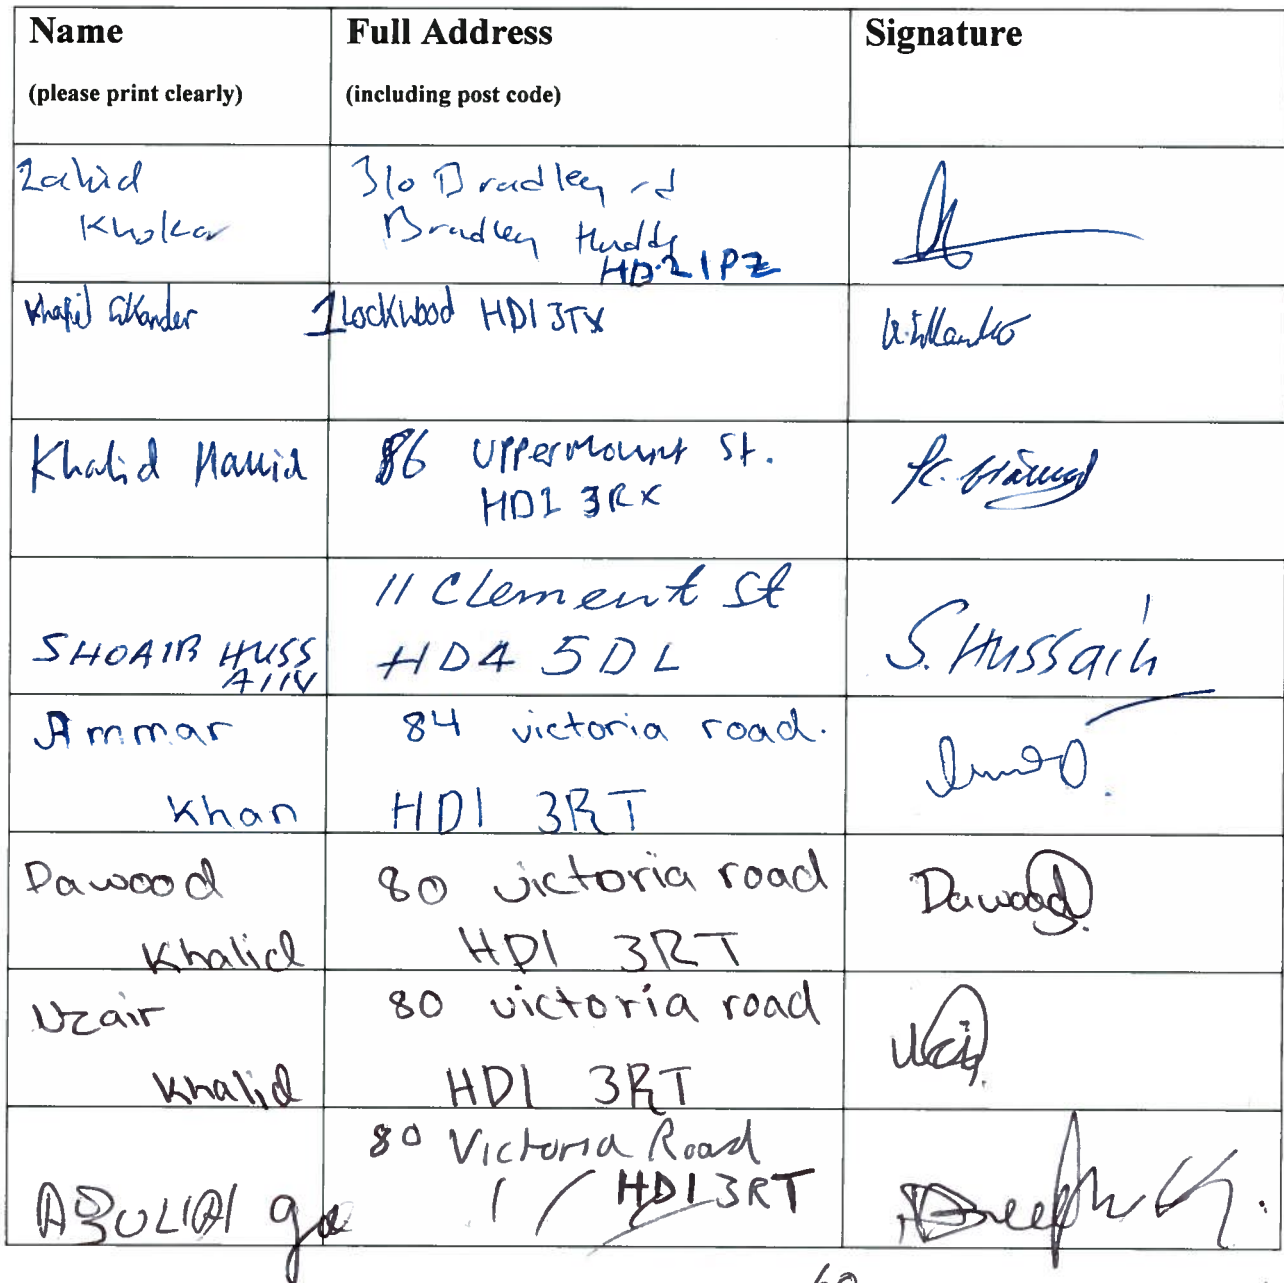 Name
Full Address
Signature
(please print clearly)
(including post code)
Zahid
Khokar
310 Bradley rd
Bradley Hudds
HD2 1PZ
1 Lockwood HD1 3TX
Khalid Hamid
86 Uppermount St.
HD1 3RX
SHOAIB HUSS
AIN
11 Clement St
HD4 5DL
S. Hussain
Ammar
Khan
84 victoria road.
HD1 3RT
Dawood
Khalid
80 victoria road
HD1 3RT
Dawood
Uzair
Khalid
80 victoria road
HD1 3RT
80 Victoria Road
HD1 3RT